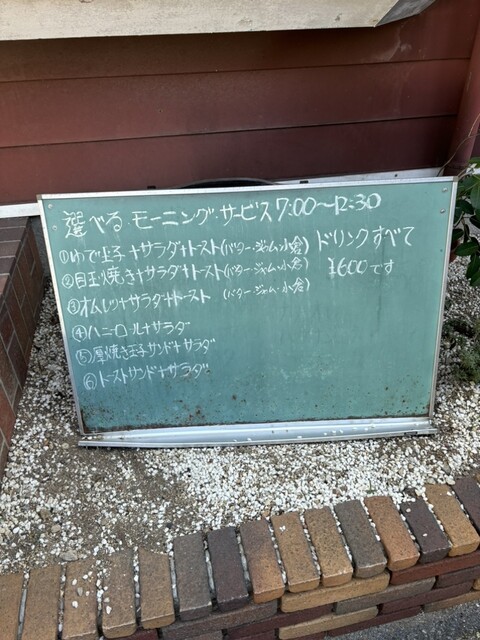 選べる モーニング・サービス7:00〜12:30
①ゆで玉子+サラダ+トースト(バター・ジャム・小倉)
②目玉焼き+サラダ+トースト(バター・ジャム・小倉)
③オムレツ+サラダ+トースト (バター・ジャム・小倉)
④ハニーロール+サラダ
⑤厚焼き玉子サンド+サラダ
⑥トーストサンド+サラダ
ドリンクすべて
¥600です